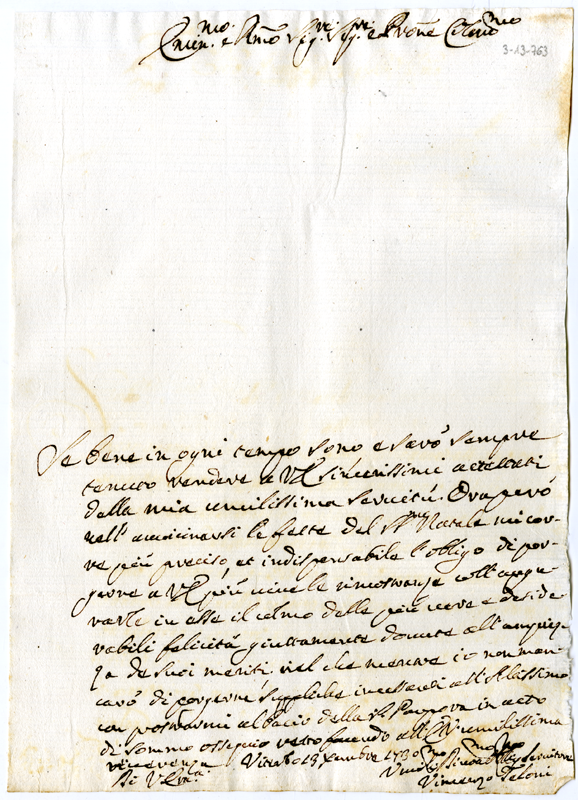 Emin.mo e Rmo Sig.re Sig.re e Prone Colmo
3-13-763
Se bene in ogni tempo sono e sarò sempre
tenuto rendere a VE sincerissimi attestati
della mia umilissima servitù. Ora però
nell' avvicinarsi le feste del SS.mo Natale mi cor-
re più preciso, et indispensabile l'obligo di por-
gerne a VE più vive le rimostranze coll'augu-
rarle in esse il colmo delle più vere e deside
rabili felicità giustamente dovute all'ampiez-
za de suoi meriti nel che mentre io non man
carò di porgerne suppliche incessanti all'Altissimo
con prostrarmi al bacio della Porpora in atto
di sommo ossequio resto facendo all'EV umilissima
riverenza Viterbo 13 Xembre 1730
Di VE
Vincenzo